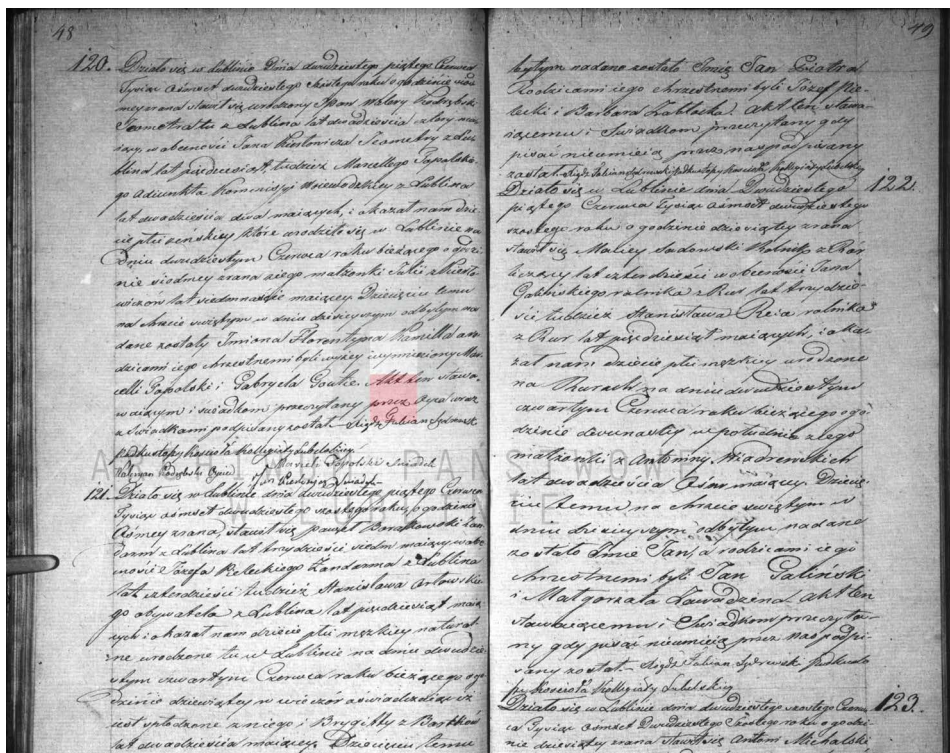 48
120. Działo się w Lublinie Dnia dwudziestego piątego Czerwca
Tysiąc Ośmset dwudziestego szóstego roku o godzinie
zrana stawił się urodzony Walery
Jeometra tu z Lublina lat dwadzieścia cztery maią
cy, w obecności Jana Kiersłowicza Jeometry z Lu
blina lat pięćdziesiąt, tudzież Marcellego Papolskie
go Adiunkta Kommissyi Woiewodzkiey z Lublina
lat dwadzieścia dwa maiących, i okazał nam dzie
cie płci żeńskiey, które urodziło się w Lublinie na
Dniu dwudziestym Czerwca roku bieżącego o godzi
nie siodmey zrana z iego małżonki Julii z Kiersło
wiczow lat siedmnaście maiącey Dziecięciu temu
na chrzcie świętym w dniu dzisieyszym odbytym na
dane zostały Imiona Florentyna Kamilla a ro
dzicami iego chrzestnemi byli wyżey wymieniony Mar
celli Papolski i Gabryela Akt ten stawa
iącym i świadkom przeczytany przez Oyca wraz
z świadkami podpisany został Xiądz Julian
Podkustopy kościoła Kollegiaty Lubelskiey
Waleryan Oyciec Marceli Papolski Świadek
Jan Świadek
121. Działo się w Lublinie dnia dwudziestego piątego Czerwca
Tysiąc ośmset dwudziestego szóstego roku, o godzinie
Osmey zrana, stawił się Paweł Żan
darm z Lublina lat trzydzieści siedm maiący w obe
cności Józefa Bieleckiego Żandarma z Lublina
lat czterdzieści tudzież Stanisława Orłowskie
go obywatela z Lublina lat pięćdziesiąt maią
cych i okazał nam dziecie płci męzkiey natural
ne urodzone tu w Lublinie na dniu dwudzie
stym czwartym Czerwca roku bieżącego o go
dzinie dziewiątey w wieczór oświadczaiąc iż
iest spłodzone z niego i Brygitty z Bartków
lat dwadzieścia maiącey. Dziecięciu temu
49
bytym nadano zostało Imię Jan Piotr a
Rodzicami iego chrzestnemi byli Józef Bie
lecki i Barbara Zabłocka. Akt ten stawa
iącemu i Świadkom przeczytany gdy
pisać nieumieią przez nas podpisany
został. Xiądz Julian Podkustopy kościoła Kollegiaty Lubelskiey
Działo się w Lublinie dnia Dwudziestego 122.
piątego Czerwca Tysiąc ośmset dwudziestego
szóstego roku o godzinie dziewiątey zrana
stawił się Maciey Sadowski Rolnik z Rur
liczący lat czterdzieści w obecności Jana
Galińskiego rolnika z Rur lat trzydzie
ści tudzież Stanisława Reia rolnika
z Rur lat pięćdziesiąt maiących, i oka
zał nam dziecie płci męzkiey urodzone
na Rurach na dniu dwudziestym
czwartym Czerwca roku bieżącego o go
dzinie dwunastey w południe z iego
małżonki z Antoniny
lat dwadzieścia Ośm maiącey. Dziecię
ciu temu na chrzcie świętym w
dniu dzisieyszym odbytym nadane
zostało Imie Jan, a rodzicami iego
chrzestnemi byli Jan Galiński
i Małgorzata Zawadzina. Akt ten
stawaiącemu i Świadkom przeczyta
ny gdy pisać nieumieią przez nas podpi
sany został. Xiądz Julian Podkusto
py kościoła Kollegiaty Lubelskiey
Działo się w Lublinie dnia dwudziestego szóstego Czerw 123.
ca Tysiąc Ośmset Dwudziestego Szóstego roku o godzi
nie dziewiątey zrana stawił się Antoni Michalski